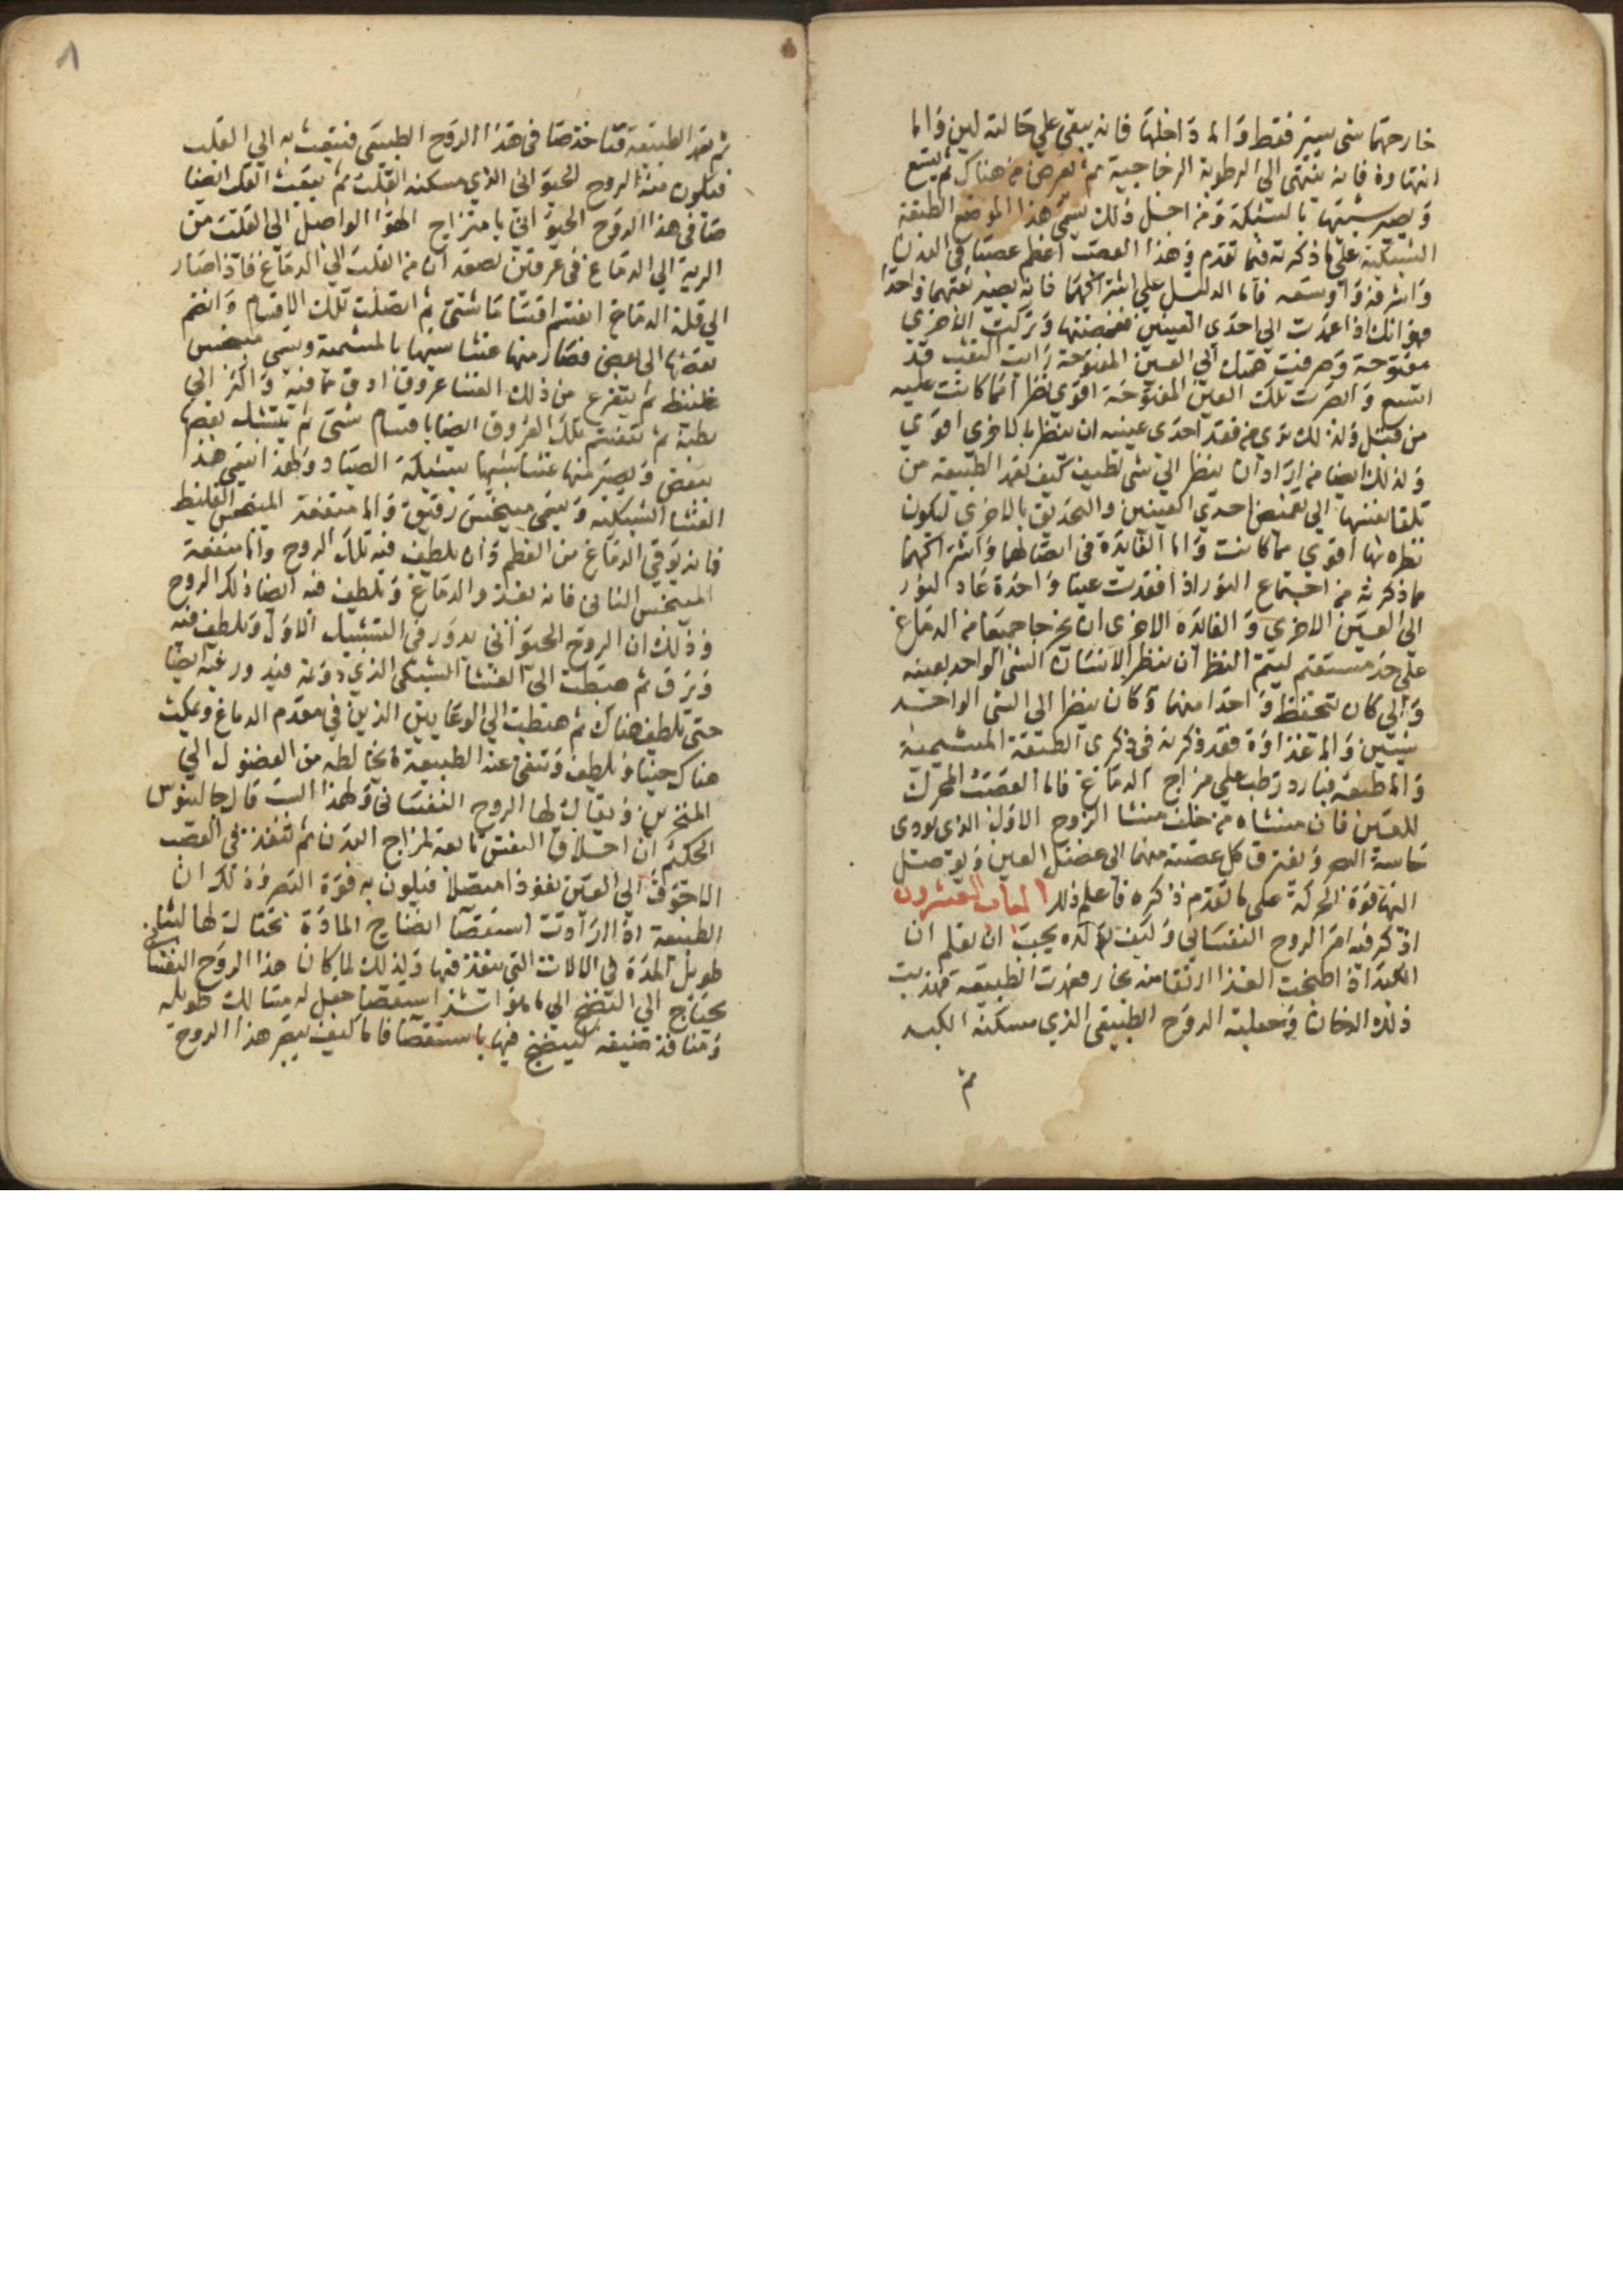 خارجهما شى يسير فقط واما داخلها فانه يبقى علي حالته لين واما
انتهاوه فانه ينتهى الي الرطوبة الزجاجية ثم يعرض من هناك ثم يتسع
ويصير شبيها بالشبكة ومن اجل ذلك يسمى هذا الموضع الطبقة
الشبكية علي ما ذكرته فيما تقدم وهذا العصب اعظم عصبا في البدن
واشرفه واوسعه فاما الدليل علي اشتراكهما فانه يصير نفسهما واحدا
فهو انك اذا عمدت الي احدي العينين فغمضتها وتركت الاخري
مفتوحة وصرفت همتك الي العين المفتوحة رايت الثقب قد
اتسع وابصرت تلك العين المفتوحة اقوي نظرا مما كانت عليه
من قبل ولذلك نرى من فقد احدى عينيه ان ينظر بالاخرى اقوي
ولذلك ايضا من اراد ان ينظر الي شى لطيف كيف تقد الطبيعة من
تلقا نفسها الي تغميض احدي العينين والتحديق بالاخرى ليكون
نظره بها اقوي مما كانت واما الفايدة في اتصالهما واشتراكهما
مما ذكرته من اجتماع النور اذا فقدت عينا واحدة عاد النور
الى العين الاخرى والفايدة الاخرى ان يخرجا جميعا من الدماغ
علي حد مستقيم ليتم النظر ان ينظر الانسان الشى الواحد بعينه
والى كان تتحفظ واحدا منهما وكان ينظر الى الشى الواحد
شيئين واما غذاوه فقد ذكرته في ذكرى الطبقة المشيمية
واما طبعه فبارد رطب علي مزاج الدماغ فاما العصب المحرك
للعين فان منشاه من خلف منشا الزوج الاول الذي يودى
حاسة البصر ويفترق كل عصبة منهما الى عضل العين ويوصل
اليها قوة الحركة على ما تقدم ذكره فاعلم ذلك الباب العشرون
اذكر فيه امر الروح النفساني وكيف تولده يجب ان يعلم ان
الكبد اذا طبخت الغذا ارتقا منه بخار فعمدت الطبيعة فهذبت
ذلك الدخان وجعلته الروح الطبيعى الذي مسكنه الكبد
ثم
٨
ثم تعد الطبيعة قسا خدصا في هذا الروح الطبيعى فتبعث به الي القلب
فيكون منه الروح الحيواني الذي مسكنه القلب ثم يبعث القلب ايضا
صا في هذا الروح الحيواني بامتزاج الهوا الواصل الي القلب من
الرية الي الدماغ في عرقين يصعدان من القلب الي الدماغ فاذا صار
الي قلة الدماغ انقسم اقساما شتى ثم اتصلت تلك الاقسام وانضم
بعضها الى بعض فصار منها غشا شبيها بالمشيمة ويسمى مينخس
غليظ ثم يتفرع من ذلك الغشا عروق ادق مما فيه واكثر الى
بطنه ثم تنقسم تلك العروق ايضا باقسام شتى ثم يتشبك بعضها
ببعض ويصير منها غشا شبيها بشبكة الصياد ولهذا يسمى هذا
الغشا الشبكية ويسمى مينخس رقيق واما منفعة المينخس الغليظ
فانه يوقي الدماغ من العظم وان يلطف فيه تلك الروح واما منفعة
المينخس الثانى فانه يغذوا الدماغ ويلطف فيه ايضا ذلك الروح
وذلك ان الروح الحيوانى يدور في التشبيك الاول ويلطف فيه
ويرق ثم هبطت الى الغشا الشبكى الذي دونه فيدور فيه ايضا
حتى يلطف هناك ثم هبطت الي الوعايين الذين في مقدم الدماغ ويمكث
هناك حينا ويلطف وتنفى عنه الطبيعة ما يخالطه من الفضول الي
المنخرين ويقال لها الروح النفسانى ولهذا السبب قال جالينوس
الحكيم ان اخلاق النفس تابعة لمزاج البدن ثم تنفذ في العصب
الاجوف الي العين نفوذا متصلا فيكون به قوة البصر وذلك ان
الطبيعة اذا ارادت استقصا انضاج المادة تحتال لها لبثا
طويل المدة في الالات التي ينفذ فيها ولذلك لما كان هذا الروح النفسانى
يحتاج الي النضج الي ما هو اشد استقصا جعل له مسالك طويله
ومنافذ ضيقه لينضج فيها باستقصا فاما كيف يبصر هذا الروح